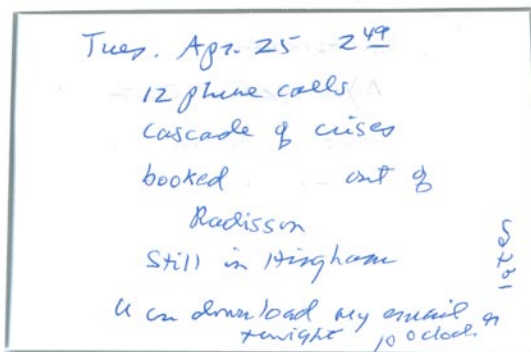 Tues. Apr. 25 2 49
12 phone calls
cascade of crises
booked out of
Radisson
Still in Hingham
U can download my email
tonight 10 o'clock